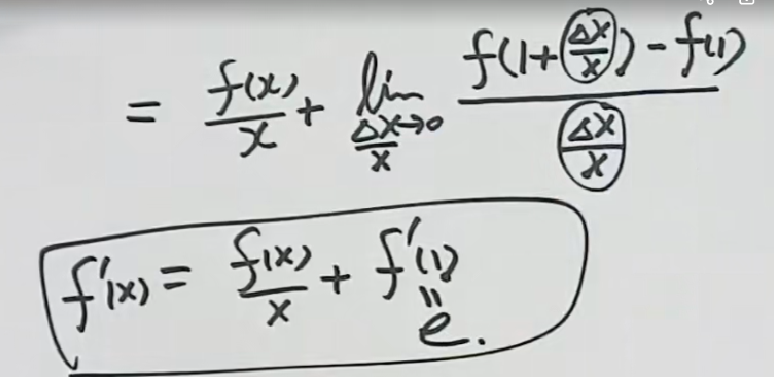 = f(x)/x + lim Δx/x→0 f(1+(Δx/x)) - f(1) / (Δx/x)
f'(x) = f(x)/x + f'(1)
=
e.